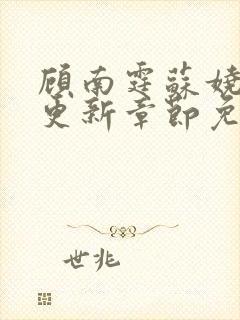 顾南霆苏娆
更新章节免
世兆